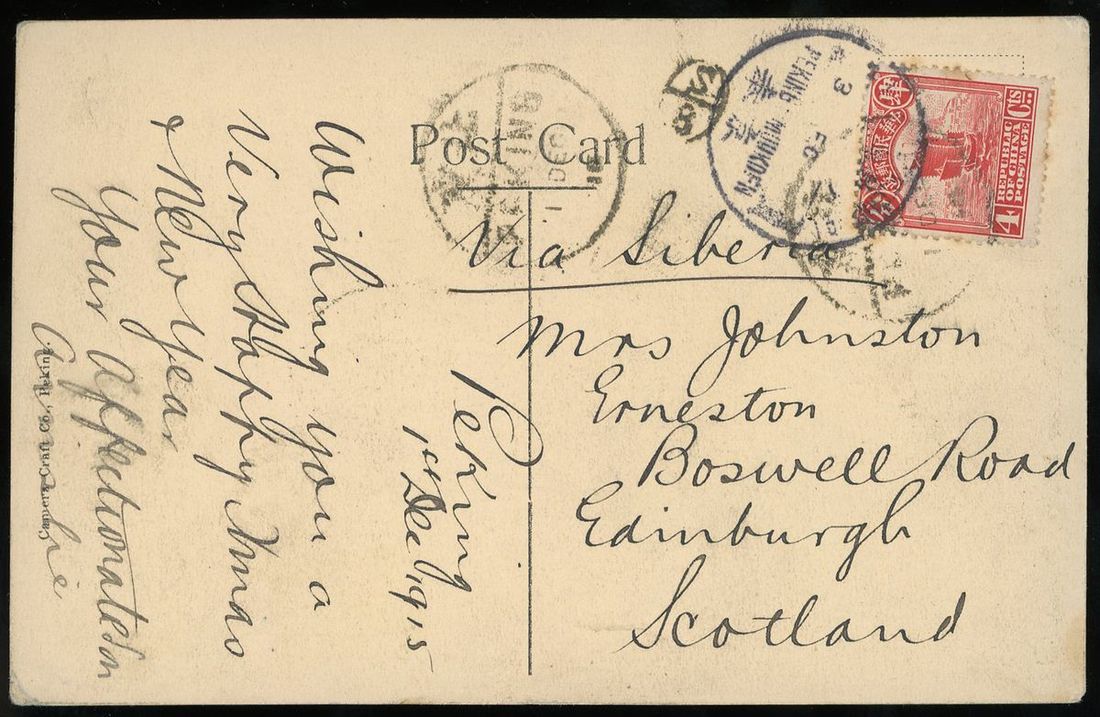 Post Card
Via Siberia
Mrs Johnston
Erneston
Boswell Road
Edinburgh
Scotland
Peking
1st Dec 1915
Wishing you a
Very Happy Xmas
& New Year
Your Affectionate Son
Archie
Camera Craft Co., Peking.
PEKING
DEC
PEKING MUKDEN
3
REPUBLIC
OF CHINA
POSTAGE
4 Cts